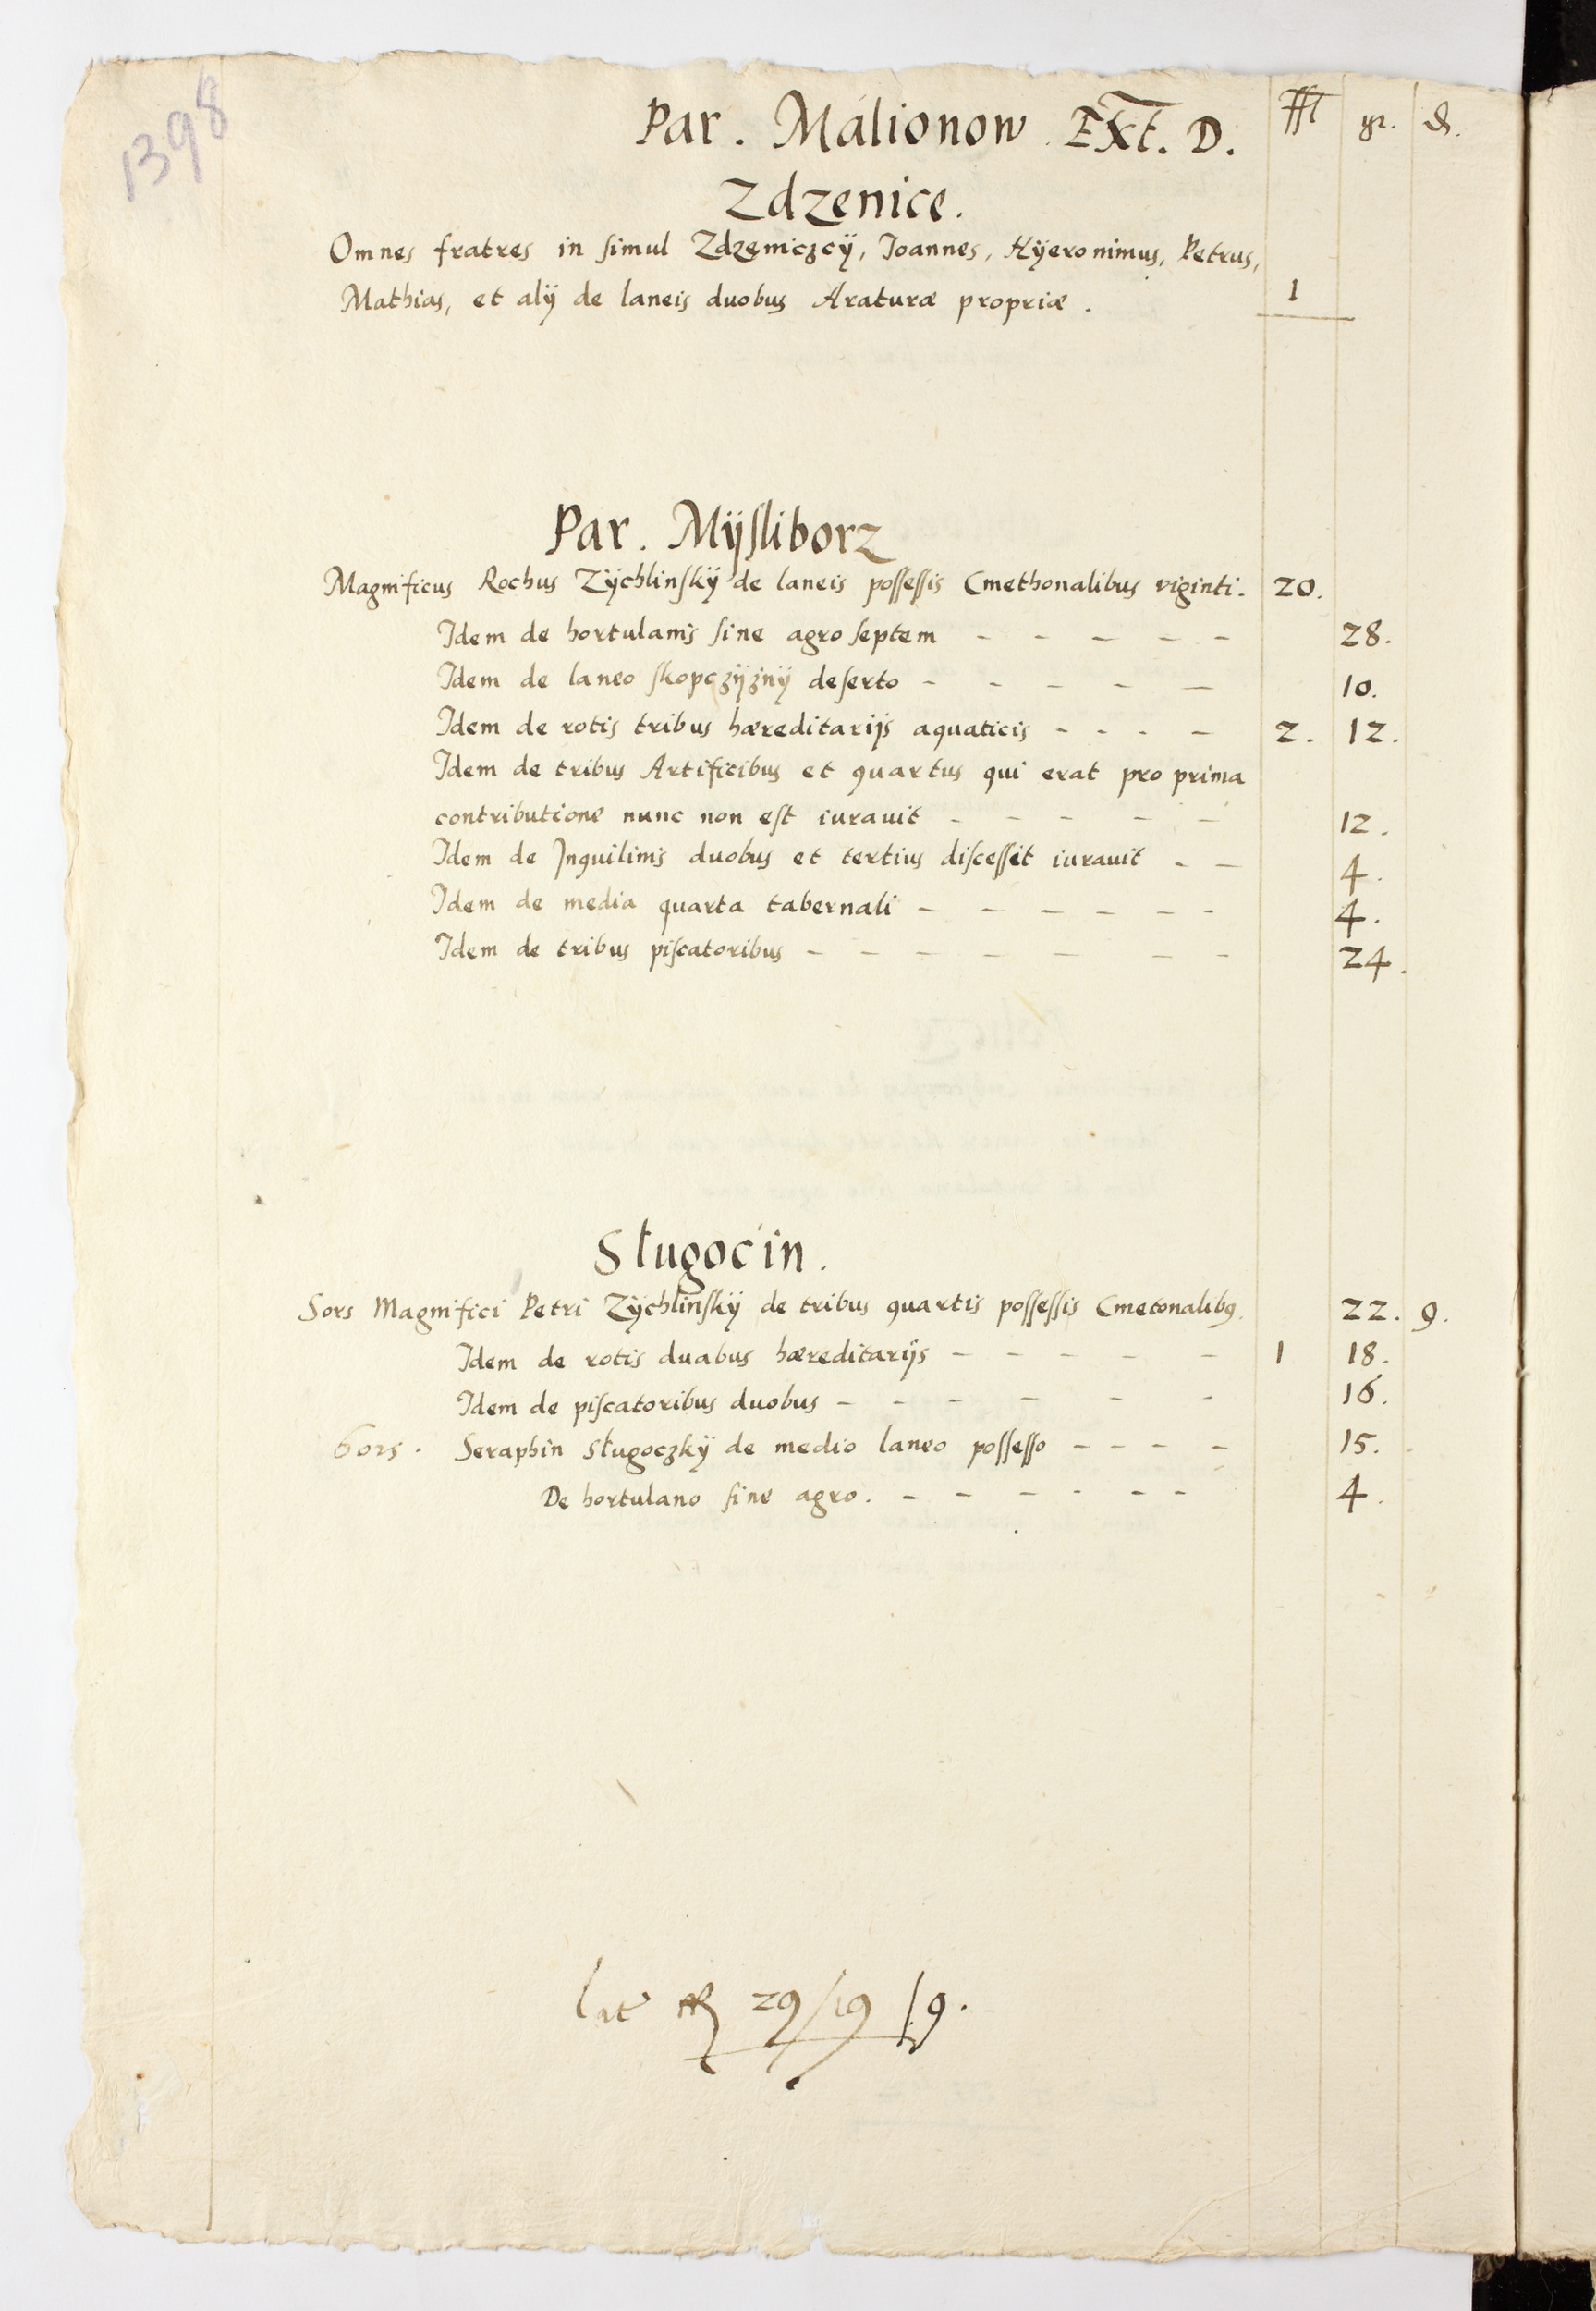 1398
Par. Malionow Ext. D. ffl gr. d.
Zdzenice.
Omnes fratres in simul Zdzeniczcÿ, Joannes, Hÿeronimus, Petrus,
Mathias, et alÿ de laneis duobus Araturæ propriæ. 1
Par. Mÿsliborz
Magnificus Rochus Zÿchlinskÿ de laneis possessis Cmethonalibus viginti. 20.
Idem de hortulanis sine agro septem - - - - - 28.
Idem de laneo skopczÿznÿ deserto - - - - - 10.
Idem de rotis tribus hæreditarijs aquaticis - - - - 2. 12.
Idem de tribus Artificibus et quartus qui erat pro prima
contributione nunc non est iurauit - - - - - 12.
Idem de Inquilinis duobus et tertius discessit iurauit - - 4.
Idem de media quarta tabernali - - - - - - 4.
Idem de tribus piscatoribus - - - - - - - 24.
Sługocin.
Sors Magnifici Petri Zÿchlinskÿ de tribus quartis possessis Cmetonalibq. 22. 9.
Idem de rotis duabus hæreditarijs - - - - - 1 18.
Idem de piscatoribus duobus - - - - - - 16.
Sors. Seraphin Sługoczkÿ de medio laneo possesso - - - - 15.
De hortulano sine agro. - - - - - - 4.
Lat 29/19/9.